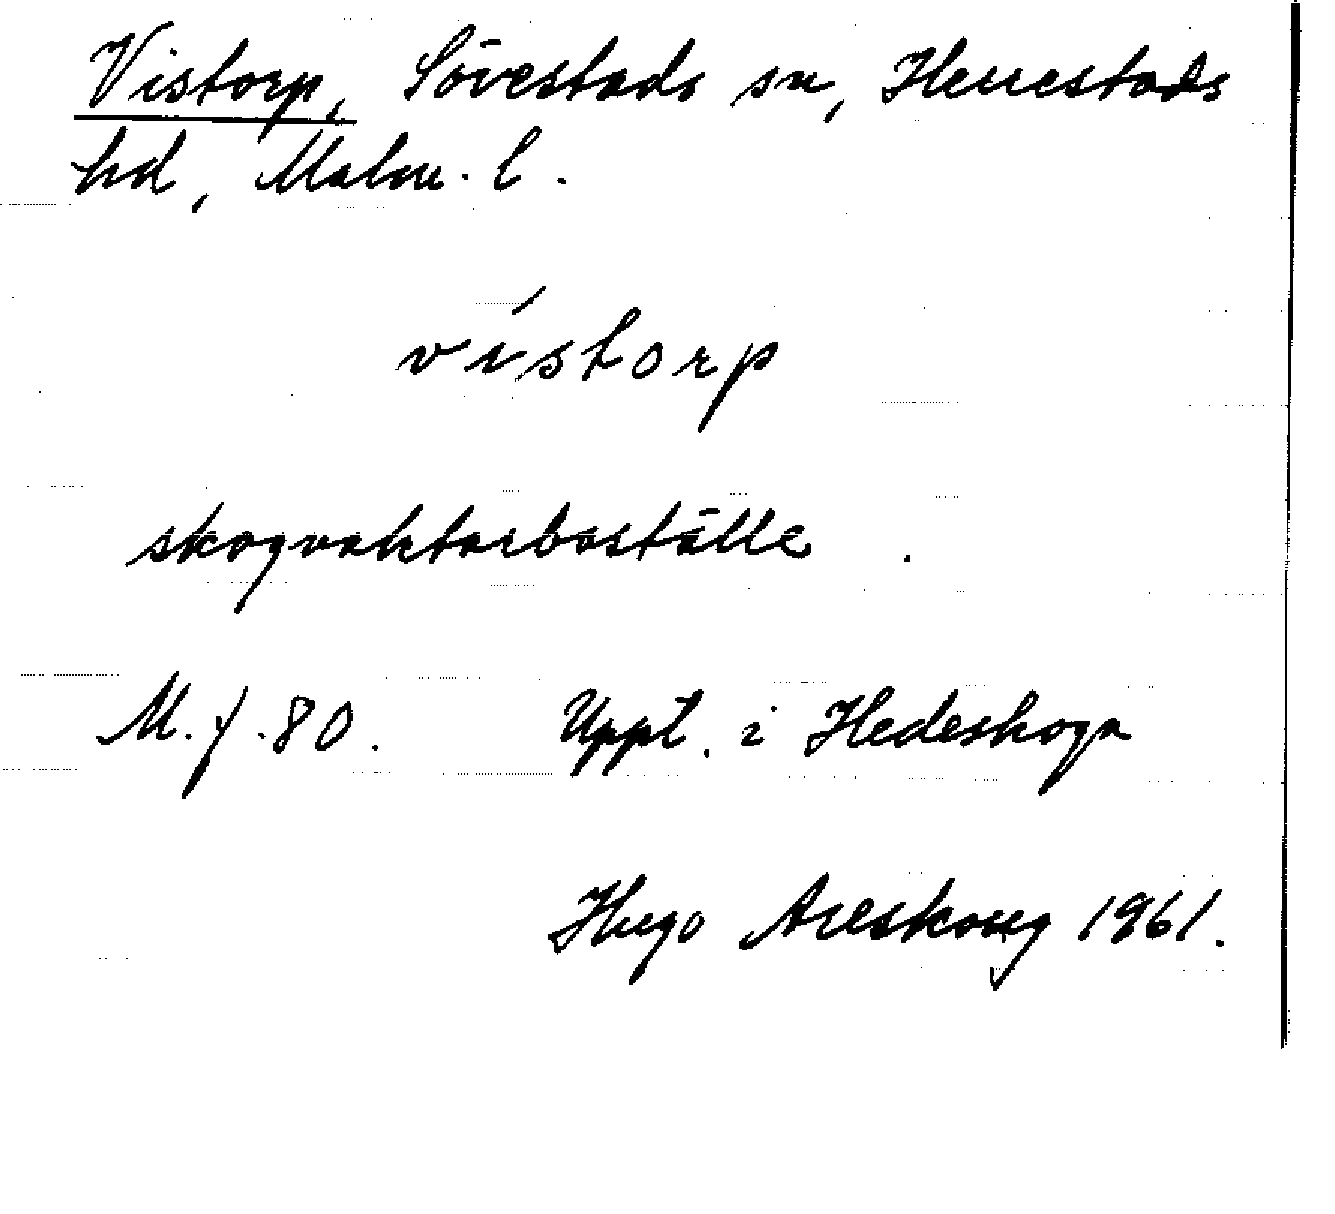 Vistorp, Sövestads sn, Herrestads
hd, Malm. l.
vístorp
skogvaktarboställe.
M. f. 80. Uppt. i Hedeskoga
Hugo Areskoug 1961.